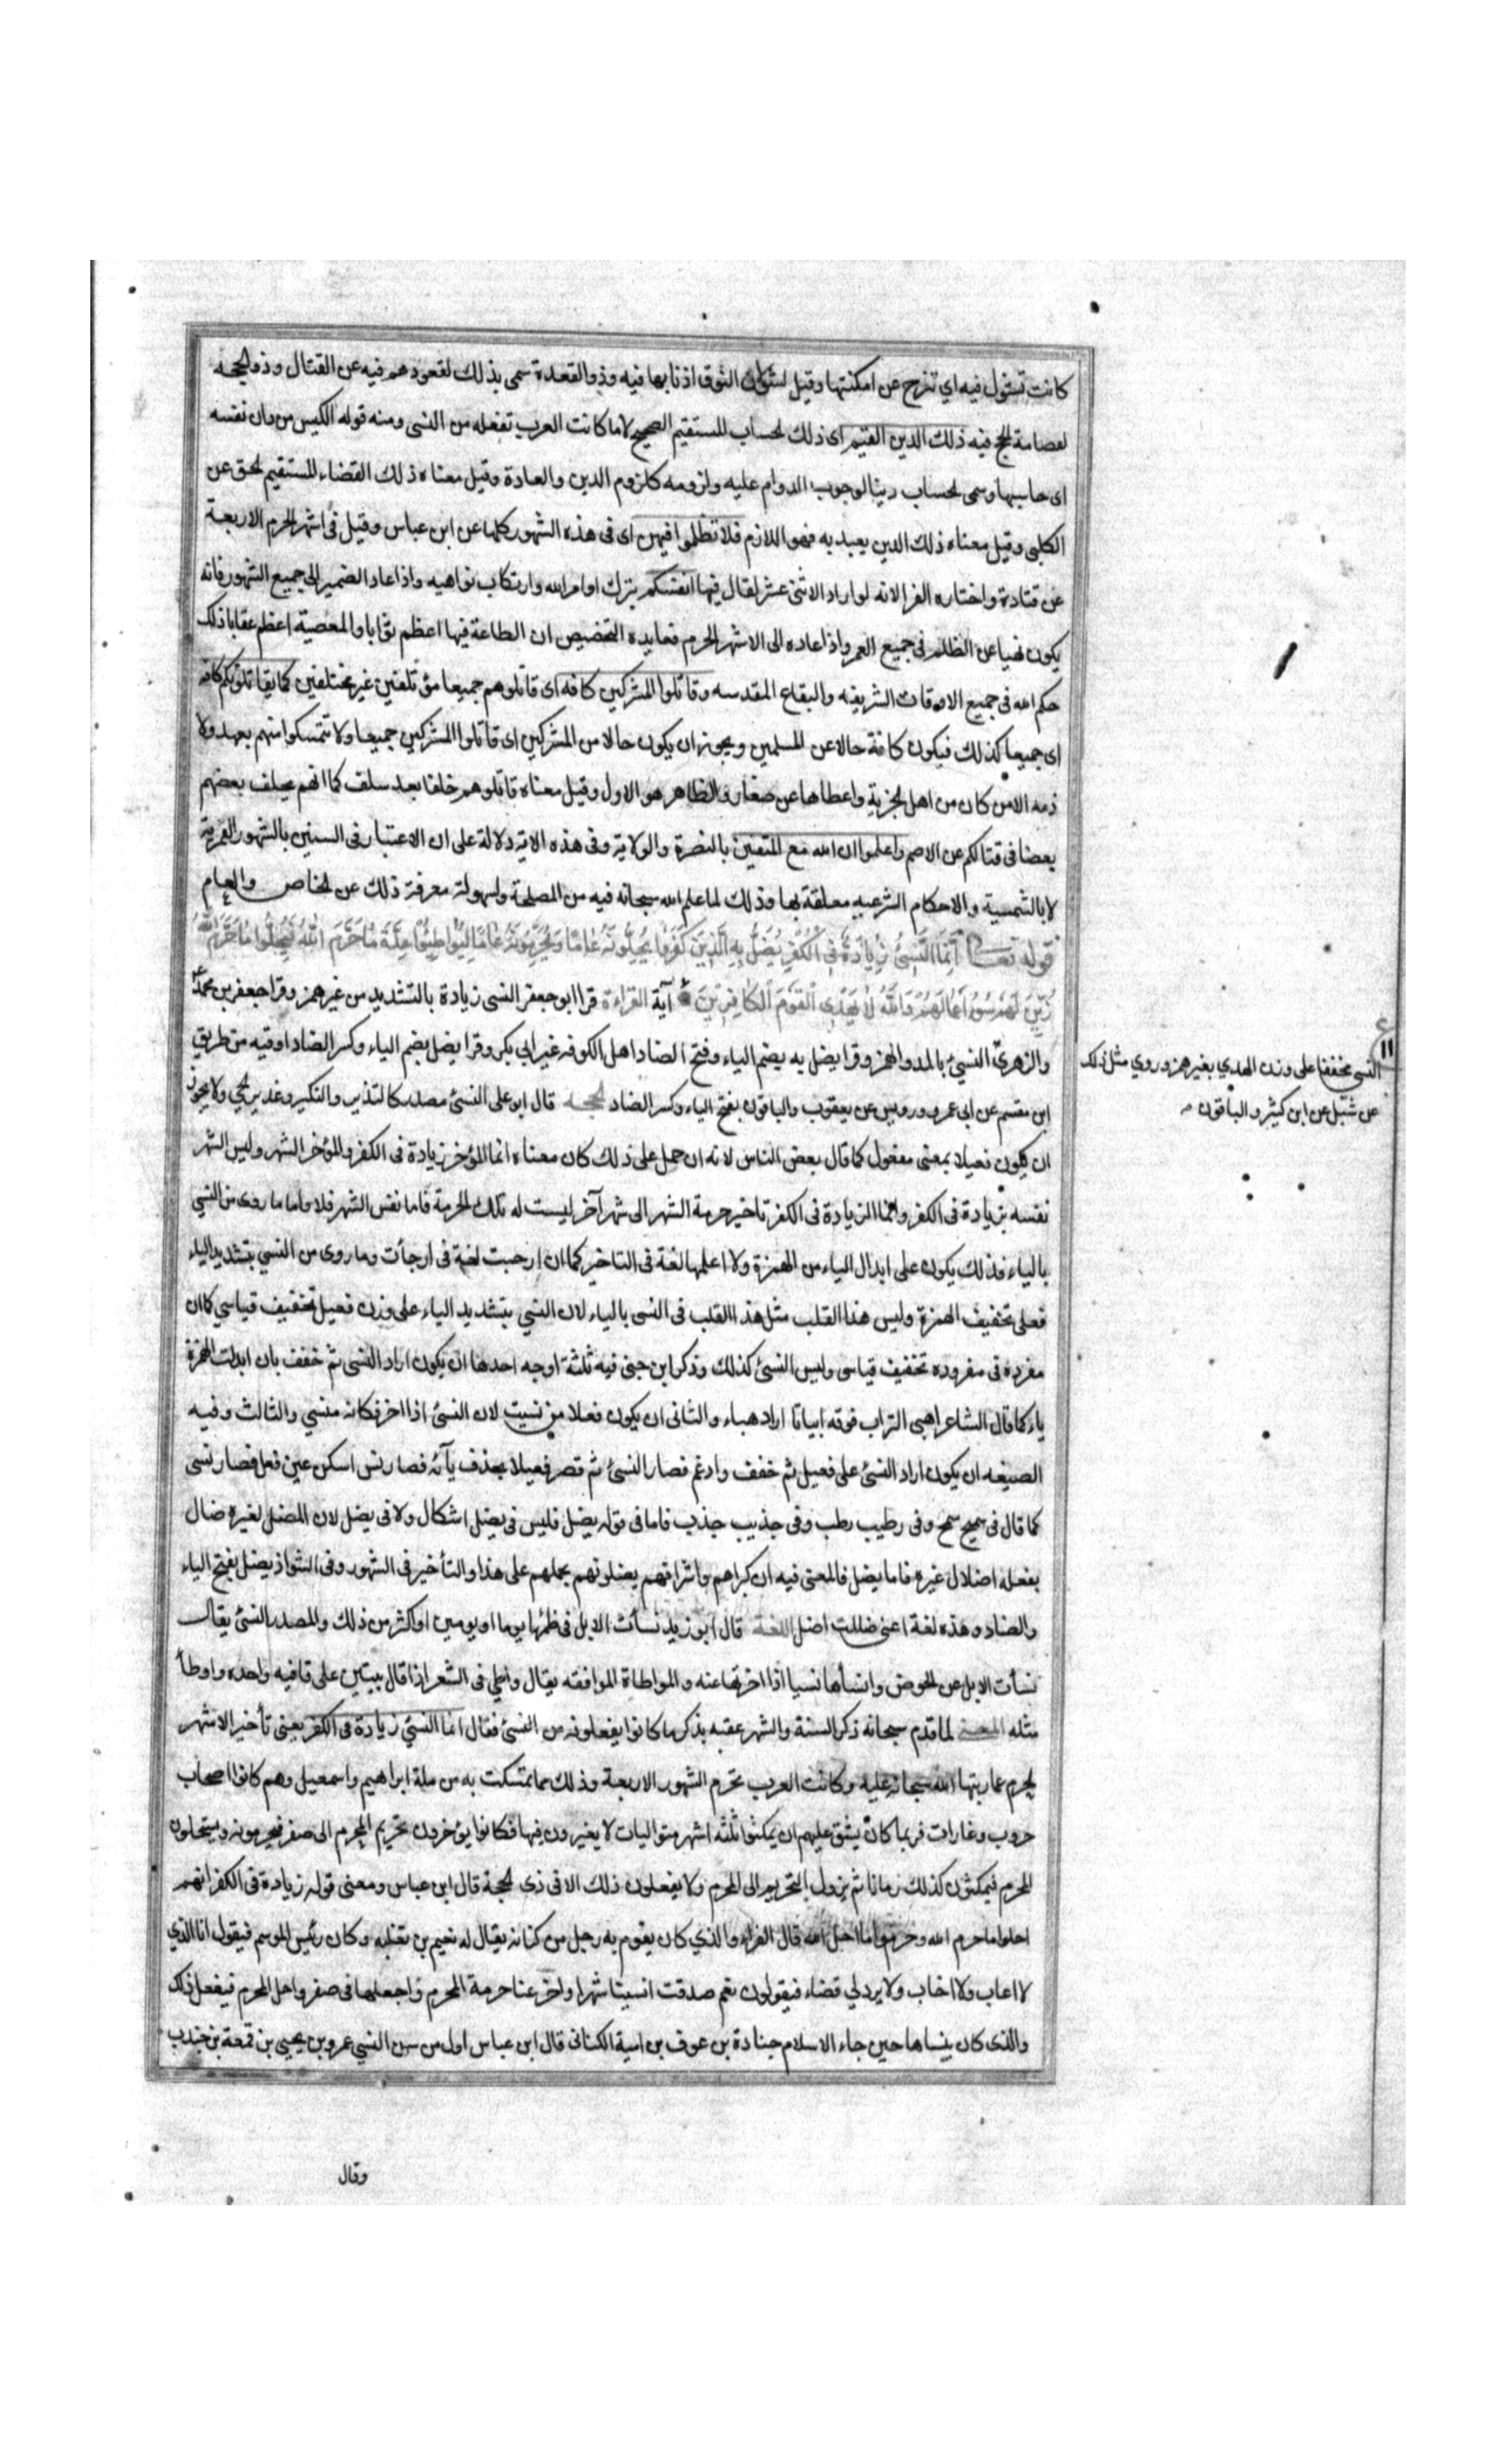 كانت تشول فيه اي تنزح عن امكنتها وقيل لشولان النوق اذنابها فيه وذو القعدة سمى بذلك لقعودهم فيه عن القتال وذو الحجه
لقصامة الحج فيه ذلك الدين القيم اى ذلك الحساب المستقيم الصحيح لا ما كانت العرب تفعله من النسى ومنه قوله الكيس من دان نفسه
اى حاسبها وسمى الحساب دينا لوجوب الدوام عليه ولزومه كلزوم الدين والعادة وقيل معناه ذلك القضاء المستقيم الحق عن
الكلبى وقيل معناه ذلك الدين يعبد به فهو اللازم فلا تظلموا فيهن اى فى هذه الشهور كلها عن ابن عباس وقيل فى اشهر الحرم الاربعة
عن قتادة واختاره الفرا لانه لو اراد الاثنى عشر لقال فيها انفسكم بترك اوامر الله وارتكاب نواهيه واذا عاد الضمير الى جميع الشهور فانه
يكون نهيا عن الظلم فى جميع العمر واذا عاده الى الاشهر الحرم ففايده التخصيص ان الطاعة فيها اعظم ثوابا والمعصية اعظم عقابا ذلك
حكم الله فى جميع الاوقات الشريفه والبقاع المقدسه وقاتلوا المشركين كافه اى قاتلوهم جميعا مؤتلفين غير مختلفين كما يقاتلونكم كافه
اى جميعا كذلك فيكون كافة حالا عن المسلمين ويجوز ان يكون حالا من المشركين اى قاتلوا المشركين جميعا ولا تتمسكوا منهم بعهد ولا
ذمه الا من كان من اهل الجزية واعطاها عن صغار والظاهر هو الاول وقيل معناه قاتلوهم خلفا بعد سلف كما انهم يخلف بعضهم
بعضا فى قتالكم عن الاصم واعلموا ان الله مع المتقين بالنصرة والولاية وفى هذه الاية دلالة على ان الاعتبار فى السنين بالشهور القمرية
لا بالشمسية والاحكام الشرعيه معلقة بها وذلك لما علم الله سبحانه فيه من المصلحة ولسهولة معرفة ذلك عن الخاص والعام
قوله تعـــا اِنَّمَا النَّسِىُّ زِيَادَةٌ فِى الْكُفْرِ يُضَلُّ بِهِ الَّذِينَ كَفَرُوا يُحِلُّونَهُ عَامًا وَيُحَرِّمُونَهُ عَامًا لِيُوَاطِئُوا عِدَّةَ مَا حَرَّمَ اللهُ فَيُحِلُّوا مَا حَرَّمَ اللهُ
زُيِّنَ لَهُمْ سُوءُ اَعْمَالِهِمْ وَاللهُ لَا يَهْدِى الْقَوْمَ الْكَافِرِينَ آية القراءة قرا ابو جعفر النسى زيادة بالتشديد من غير همز وقرا جعفر بن محمد
والزهرى النسئ بالمد والهمز وقرا يضل به بضم الياء وفتح الضاد اهل الكوفه غير ابي بكر وقرا يضل بضم الياء وكسر الضاد اوقيه من طريق
ابن مقسم عن ابى عمرو ورويس عن يعقوب والباقون بفتح الياء وكسر الضاد الحجــه قال ابو على النسئ مصدر كالنذير والنكير وغدير الحى ولا يجوز
ان يكون فعيلا بمعنى مفعول كما قال بعض الناس لانه ان حمل على ذلك كان معناه انما المؤخر زيادة فى الكفر والمؤخر الشهر وليس الشهر
نفسه بزيادة فى الكفر وانما الزيادة فى الكفر تاخير حرمة الشهر الى شهر آخر ليست له تلك الحرمة فاما نفس الشهر فلا واما ما روى من النسي
بالياء فذلك يكون على ابدال الياء من الهمزة ولا اعلمها لغة فى التاخير كما ان ارجيت لغة فى ارجأت وما روى من النسي بتشديد الياء
فعلى تخفيف الهمزة وليس هذا القلب مثل هذا القلب فى النسى بالياء لان النسي بتشديد الياء على وزن فعيل تخفيف قياسي كما ان
مقردة فى مقروده تخفيف قياسى وليس النسئ كذلك وذكر ابن جنى فيه ثلثة اوجه احدها ان يكون اراد النسى ثم خفف بان ابدلت الهمزة
ياء كما قال الشاعر اهبى التراب فوقه ابيانا اراد هباء والثانى ان يكون فعلا من نسيت لان النسئ اذا اخر فكانه منسي والثالث وفيه
الصيغه ان يكون اراد النسئ على فعيل ثم خفف وادغم فصار النسئ ثم قصر فعيلا بحذف يآئه فصار نس اسكن عين فعل فصار نسى
كما قال فى سميح سمح وفى رطيب رطب وفى جذيب جذب فاما فى قوله يضل فليس فى يضل اشكال ولا فى يضل لان المضل لغيره ضال
بفعله اضلال غيره فاما يضل فالمعنى فيه ان كبراهم واشرافهم يضلونهم بحملهم على هذا والتأخير فى الشهور وفى الشواذ يضل بفتح الياء
والضاد وهذه لغة اعنى ضللت اضل اللغــة قال ابو زيد نسأت الابل فى ظمئها يوما او يومين او اكثر من ذلك والمصدر النسئ يقال
نسأت الابل عن الحوض وانسأها نسيا اذا اخرتها عنه والمواطاة الموافقه يقال واطى فى الشعر اذا قال بيتين على قافيه واحده واوطأ
مثله المعنــى لما قدم سبحانه ذكر السنة والشهر عقبه بذكر ما كانوا يفعلونه من النسئ فقال انما النسئ زيادة فى الكفر يعنى تأخير الاشهر
الحرم عما رتبها الله سبحانه عليه وكانت العرب تحرم الشهور الاربعة وذلك مما تمسكت به من ملة ابراهيم واسمعيل وهم كانوا اصحاب
حروب وغارات فربما كان يشق عليهم ان يمكثوا ثلثه اشهر متواليات لا يغيرون فيها فكانوا يؤخرون تحريم المحرم الى صفر فيحرمونه ويستحلون
المحرم فيمكثون كذلك زمانا ثم يزول التحريم الى المحرم ولا يفعلون ذلك الا فى ذى الحجة قال ابن عباس ومعنى قوله زيادة فى الكفر انهم
احلوا ما حرم الله وحرموا ما احل الله قال الفراء والذي كان يقوم به رجل من كنانه يقال له نعيم بن ثعلبه وكان رئيس الموسم فيقول انا الذي
لا اعاب ولا اخاب ولا يرد لي قضاء فيقولون نعم صدقت انسينا شهرا واخر عنا حرمة المحرم واجعلها فى صفر واحل المحرم فيفعل ذلك
والذى كان ينساها حين جاء الاسلام جنادة بن عوف بن امية الكنانى قال ابن عباس اول من سن النسي عمرو بن يحيى بن قمعة بن خندب
وقال
النسي مخففا على وزن الهدي بغير همز وروي مثل ذلك
عن شبل عن ابن كثير والباقون